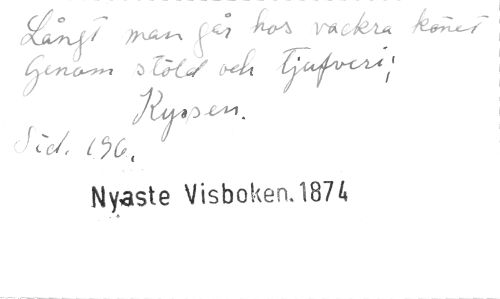 Långt man går hos vackra könet
Genom stöld och tjufveri;
Kyssen.
Sid. 196.
Nyaste Visboken. 1874